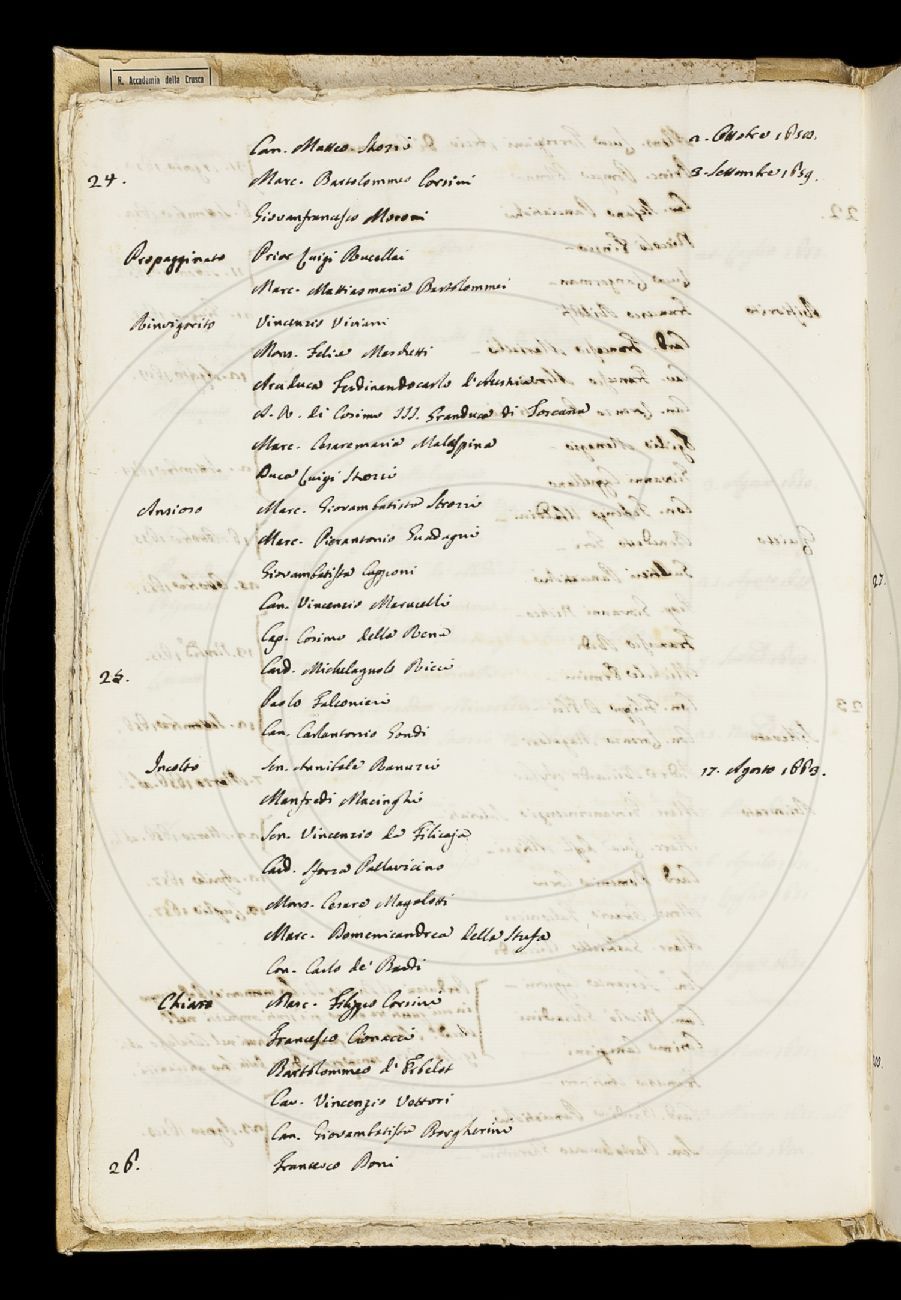 R. Accademia della Crusca
Can. Matteo Strozzi 2. Ottobre 1650.
24. Marc. Bartolommeo Corsini 3. Settembre 1659.
Giovanfrancesco Moroni
Propagginato Prior Luigi Rucellai
Marc. Mattiasmaria Bartolommei
Rinvigorito Vincenzio Viviani
Mons. Felice Marchetti
Arciduca Ferdinandocarlo d'Austria
A. R. di Cosimo III. Granduca di Toscana
Marc. Cesaremaria Malaspina
Duca Luigi Strozzi
Ansioso Marc. Giovambatista Strozzi
Marc. Pierantonio Guadagni
Giovambatista Capponi
Can. Vincenzio Marucelli
Cap. Cosimo della Rena
25. Card. Michelagnolo Ricci
Paolo Falconieri
Can. Carlantonio Gondi
Incolto Sen. Annibale Ranuzzi 17. Agosto 1663.
Manfredi Macinghi
Sen. Vincenzio da Filicaja
Card. Sforza Pallavicino
Mons. Cesare Magalotti
Marc. Domenicandrea della Stufa
Con. Carlo de' Bardi
Chiaro Marc. Filippo Corsini
Francesco Cionacci
Bartolommeo d'Erbelot
Cav. Vincenzio Vettori
Can. Giovambatista Borgherini
26. Francesco Boni
27.